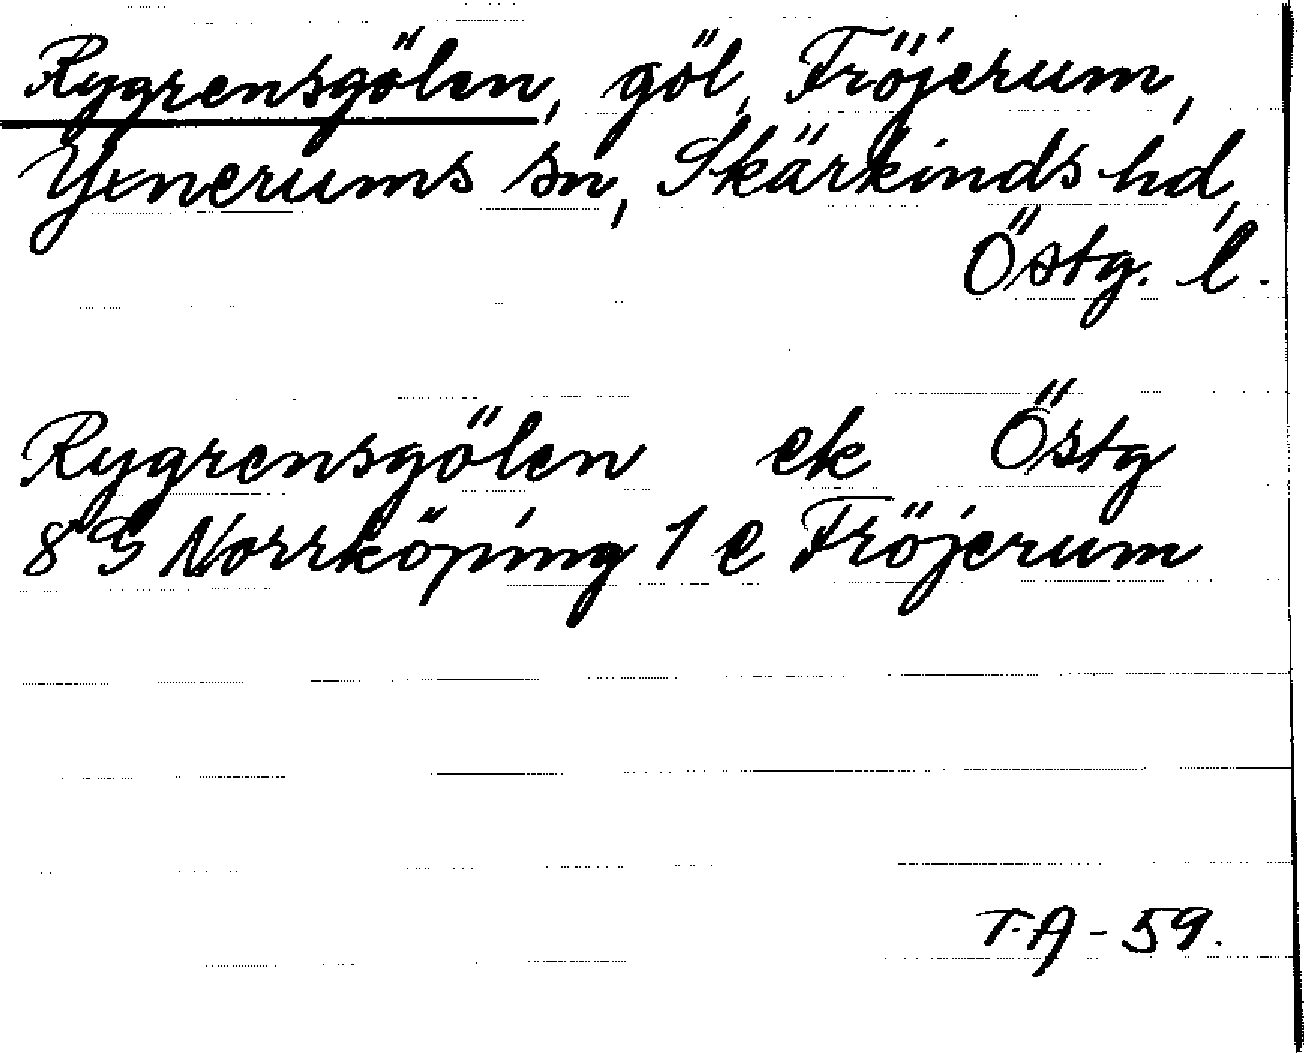 Rygrensgölen, göl, Fröjerum,
Yxnerums sn, Skärkinds hd,
Östg. l.
Rygrensgölen ek Östg
8 G Norrköping 1 e Fröjerum
T.A - 59.